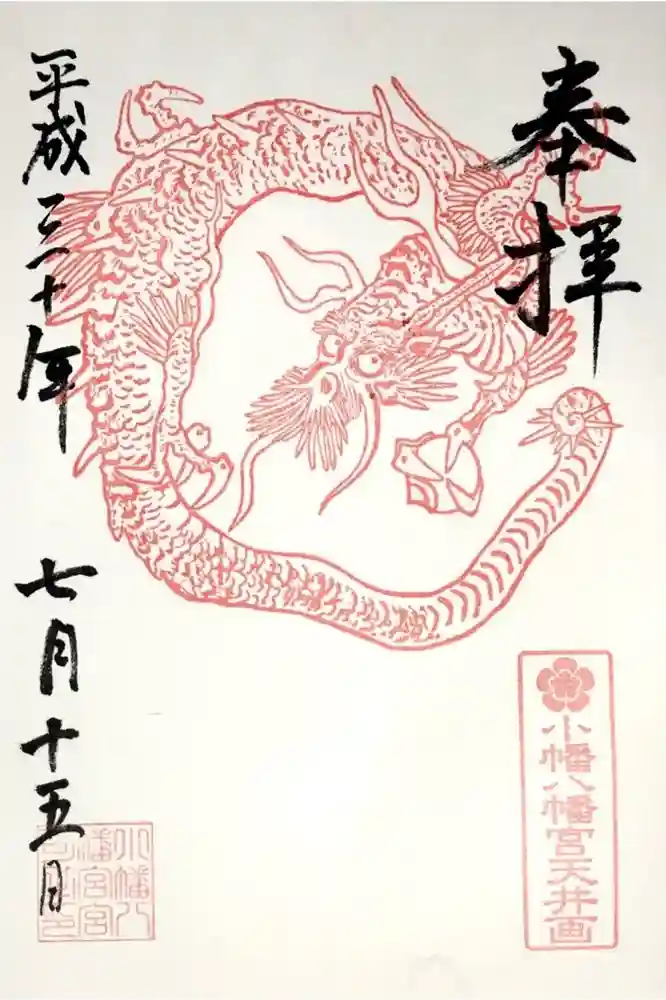 奉拝
小幡八幡宮天井画
平成三十年七月十五日
小幡八
幡宮宮